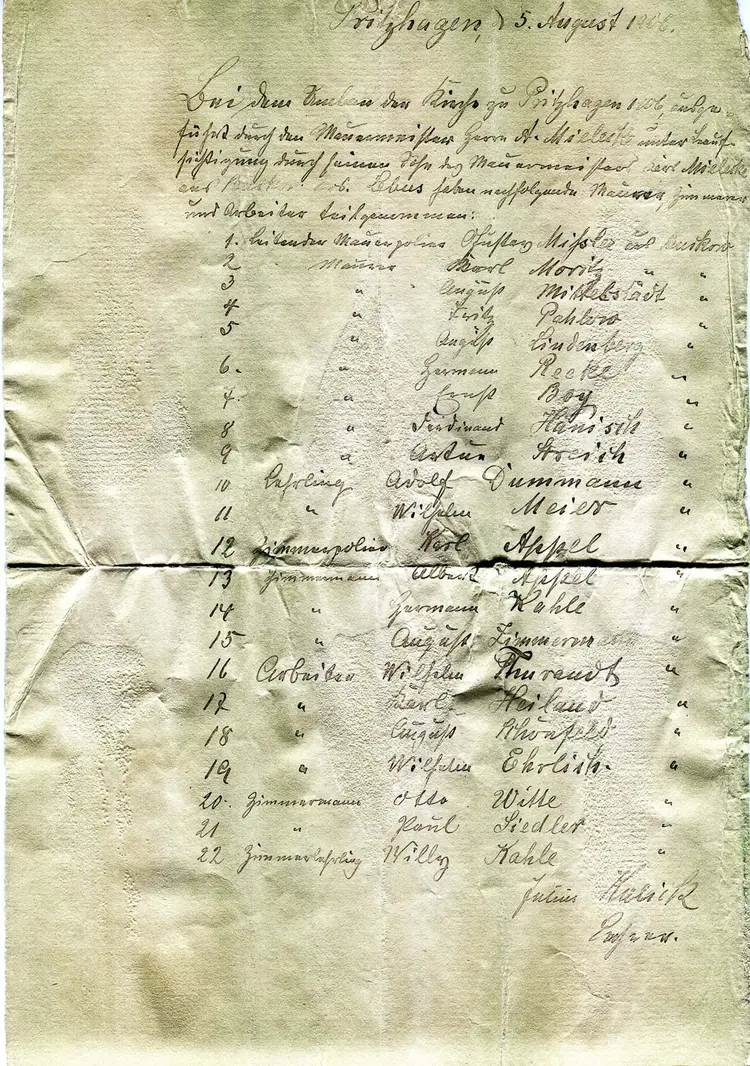 Pritzhagen, d 5. August 1906.
Bei dem Umbau der Kirche zu Pritzhagen 1906, ausge-
führt durch den Maurermeister Herrn A. Mielecke unter Beauf-
sichtigung durch seinen Sohn des Maurermeisters Karl Mielecke
aus Lebus haben nachfolgende Maurer, Zimmerer
und Arbeiter teilgenommen:
1. Leitender Maurerpolier Gustav Missler aus Buckow
2 Maurer Karl Moritz " "
3 " August Mittelstädt "
4 " Fritz Pahlow "
5 " August Lindenberg "
6. " Hermann Recke "
7. " Ernst Boy "
8 " Ferdinand Hänisch "
9 " Artur Streich "
10 Lehrling Adolf Dummann "
11 " Wilhelm Meier "
12 Zimmerpolier Karl Appel "
13 Zimmermann Albert Appel "
14 " Hermann Kahle "
15 " August Zimmermann "
16 Arbeiter Wilhelm Thurandt "
17 " Karl Heiland "
18 " August Schönfeld "
19 " Wilhelm Ehrlich. "
20. Zimmermann Otto Witte "
21 " Paul Siedler "
22 Zimmerlehrling Willy Kahle "
Julius
Lehrer.